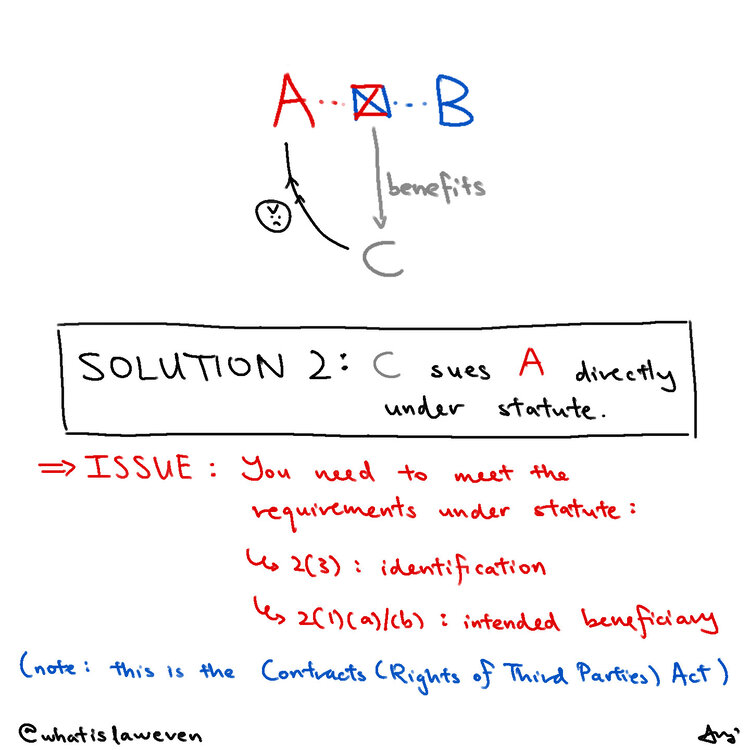 A B
benefits
C
SOLUTION 2: C sues A directly
under statute.
⇒ ISSUE: You need to meet the
requirements under statute:
↳ 2(3): identification
↳ 2(1)(a)/(b): intended beneficiary
(note: this is the Contracts (Rights of Third Parties) Act)
@whatislaweven